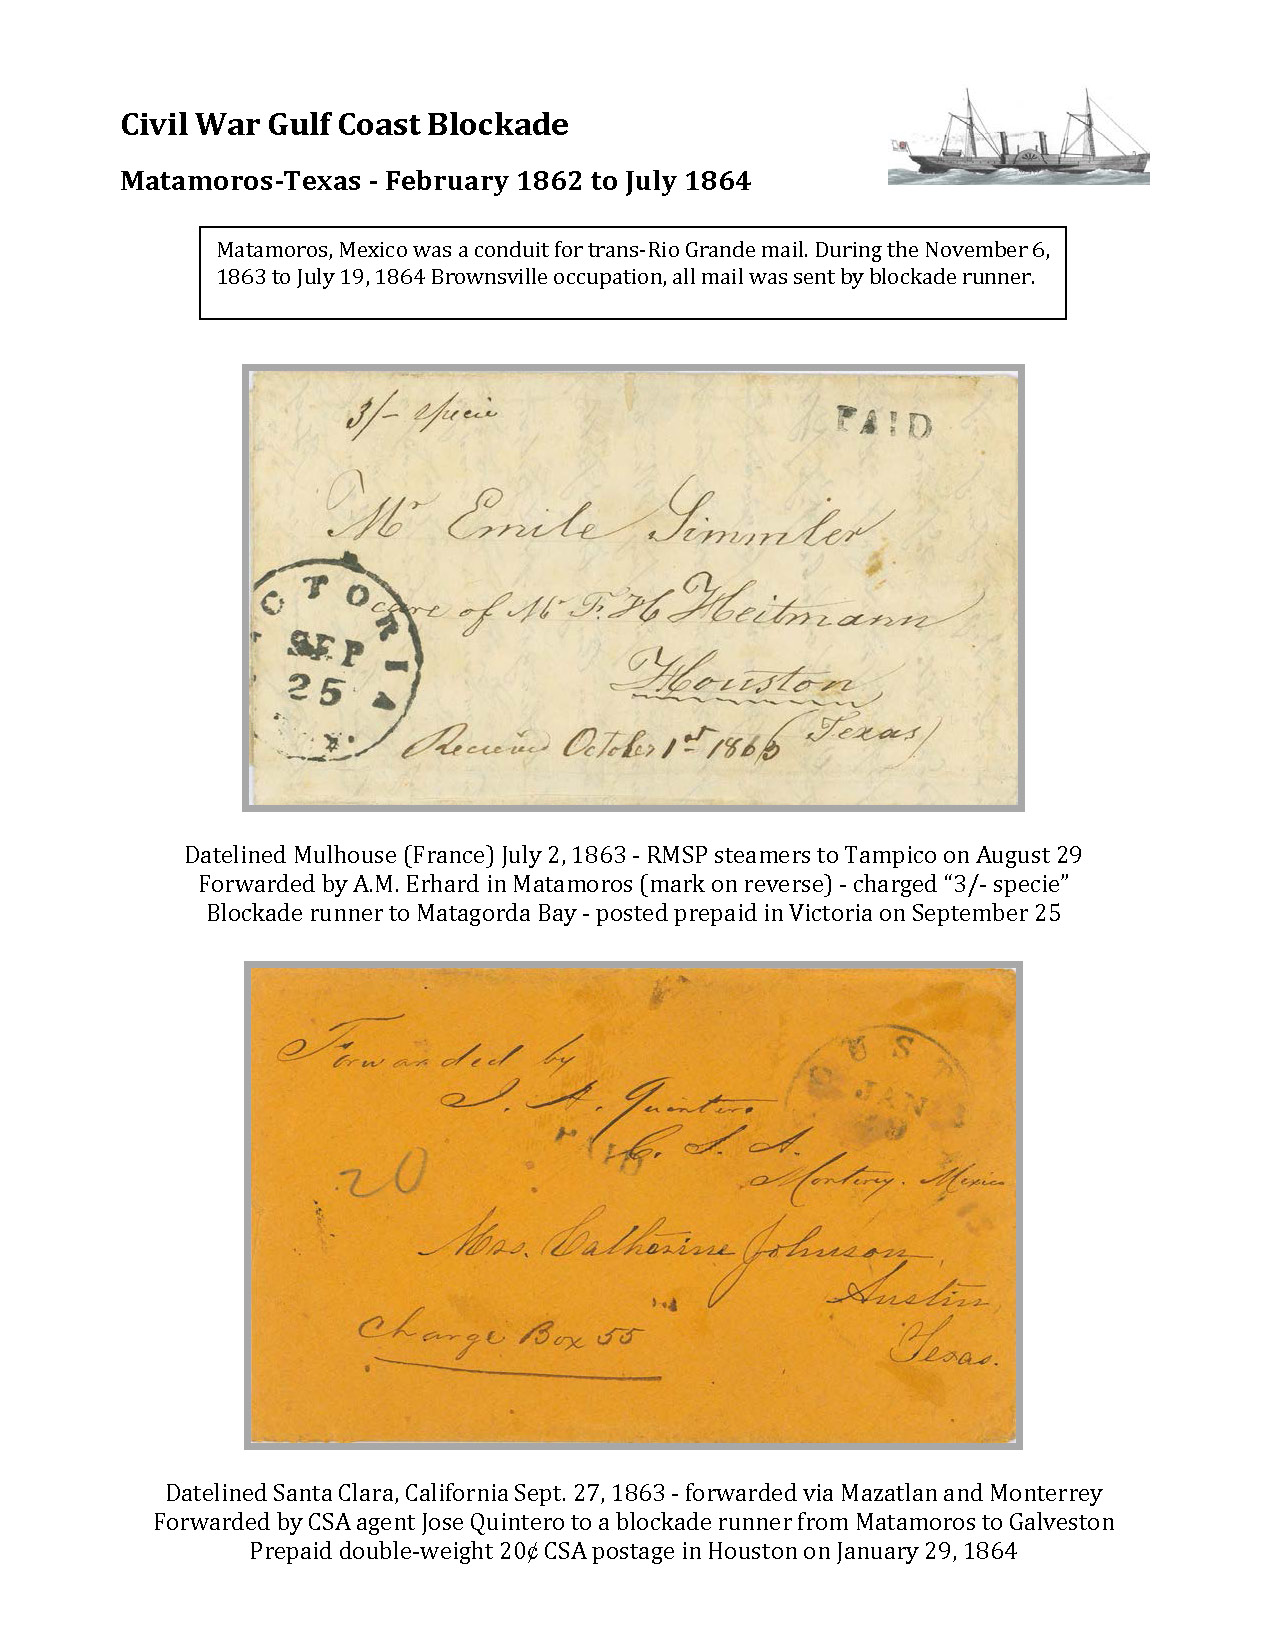 Civil War Gulf Coast Blockade
Matamoros-Texas - February 1862 to July 1864
Matamoros, Mexico was a conduit for trans-Rio Grande mail. During the November 6,
1863 to July 19, 1864 Brownsville occupation, all mail was sent by blockade runner.
3/- specie
PAID
Mr Emile Simmler
care of Mr F. H Heitmann
Houston
(Texas)
CTORIA
SEP
25
Received October 1st 1863
Datelined Mulhouse (France) July 2, 1863 - RMSP steamers to Tampico on August 29
Forwarded by A.M. Erhard in Matamoros (mark on reverse) - charged “3/- specie”
Blockade runner to Matagorda Bay - posted prepaid in Victoria on September 25
Forwarded by
J. A. Quintero
C. S. A.
Monterey. Mexico
OUST
JAN
20
Mrs. Catherine Johnson,
Austin,
Texas.
Charge Box 55
Datelined Santa Clara, California Sept. 27, 1863 - forwarded via Mazatlan and Monterrey
Forwarded by CSA agent Jose Quintero to a blockade runner from Matamoros to Galveston
Prepaid double-weight 20¢ CSA postage in Houston on January 29, 1864